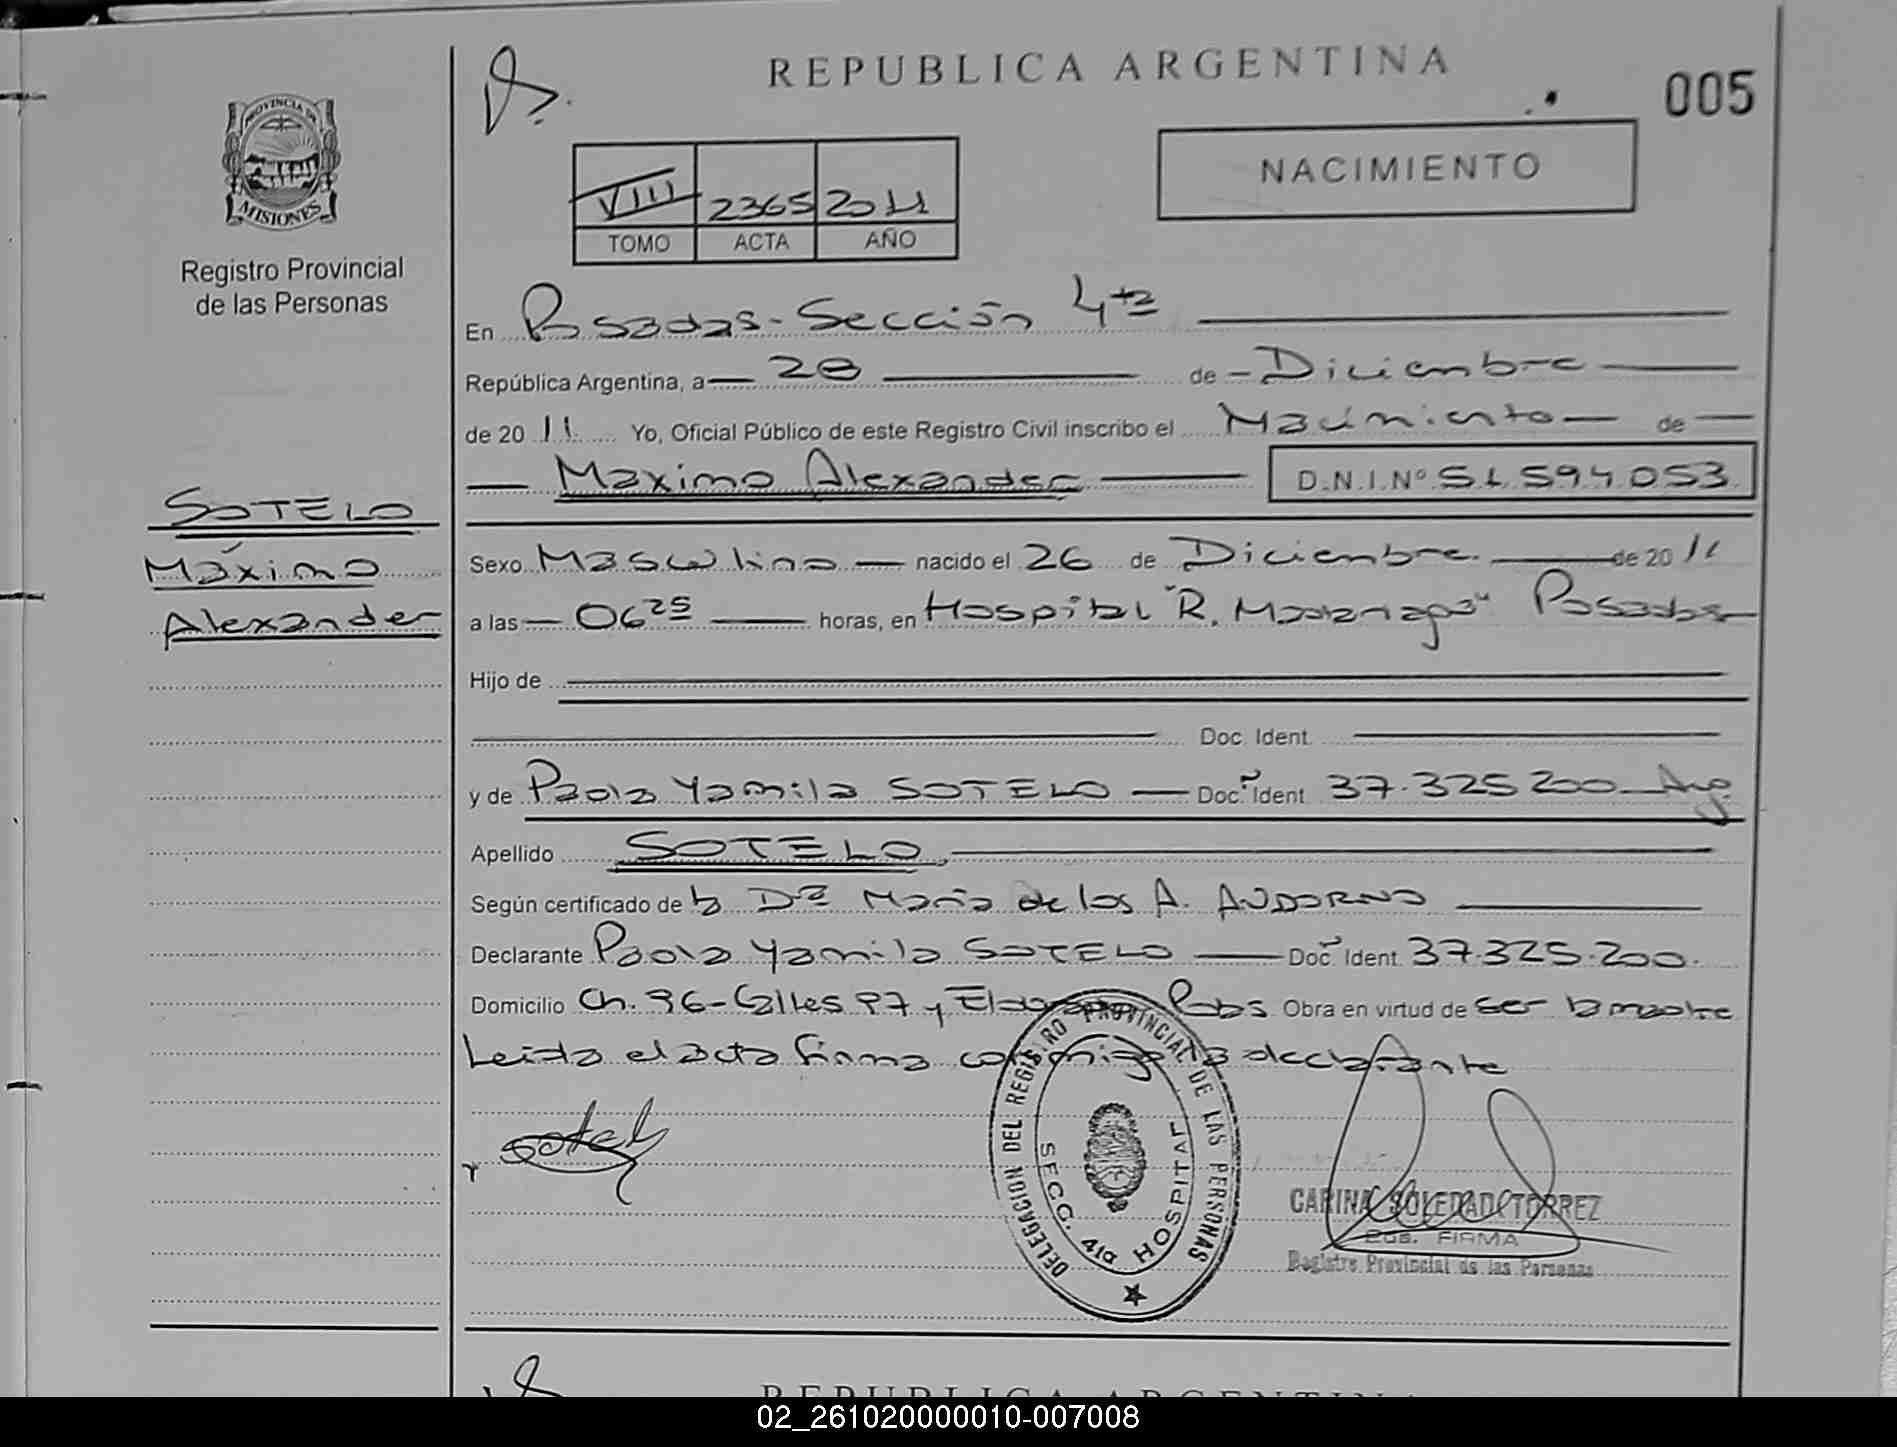 REPUBLICA ARGENTINA
005
PROVINCIA DE
MISIONES
Registro Provincial
de las Personas
NACIMIENTO
VIII 2365 2011
TOMO ACTA AÑO
En Posadas - Sección 4ta
República Argentina, a 28 de Diciembre
de 20 11 Yo, Oficial Público de este Registro Civil inscribo el Nacimiento de
Maximo Alexander D.N.I.Nº 51.594.053
SOTELO
Máximo
Alexander
Sexo Masculino nacido el 26 de Diciembre de 20 11
a las 06 25 horas, en Hospital "R. Madariaga" Posadas
Hijo de
Doc. Ident.
y de Paola Yamila SOTELO Doc. Ident. 37.325.200 Arg.
Apellido SOTELO
Según certificado de la Dra María de los A. ANDORNO
Declarante Paola Yamila SOTELO Doc. Ident. 37.325.200.
Domicilio Ch. 96 - Calles 97 y Pdas Obra en virtud de ser la madre
Leída el acta firma conmigo la declarante
Sotelo
DELEGACION DEL REGISTRO PROVINCIAL DE LAS PERSONAS
SECC. 4ta HOSPITAL
CARINA SOLEDAD TORREZ
FIRMA
Registro Provincial de las Personas
REPUBLICA ARGENTINA
02_261020000010-007008